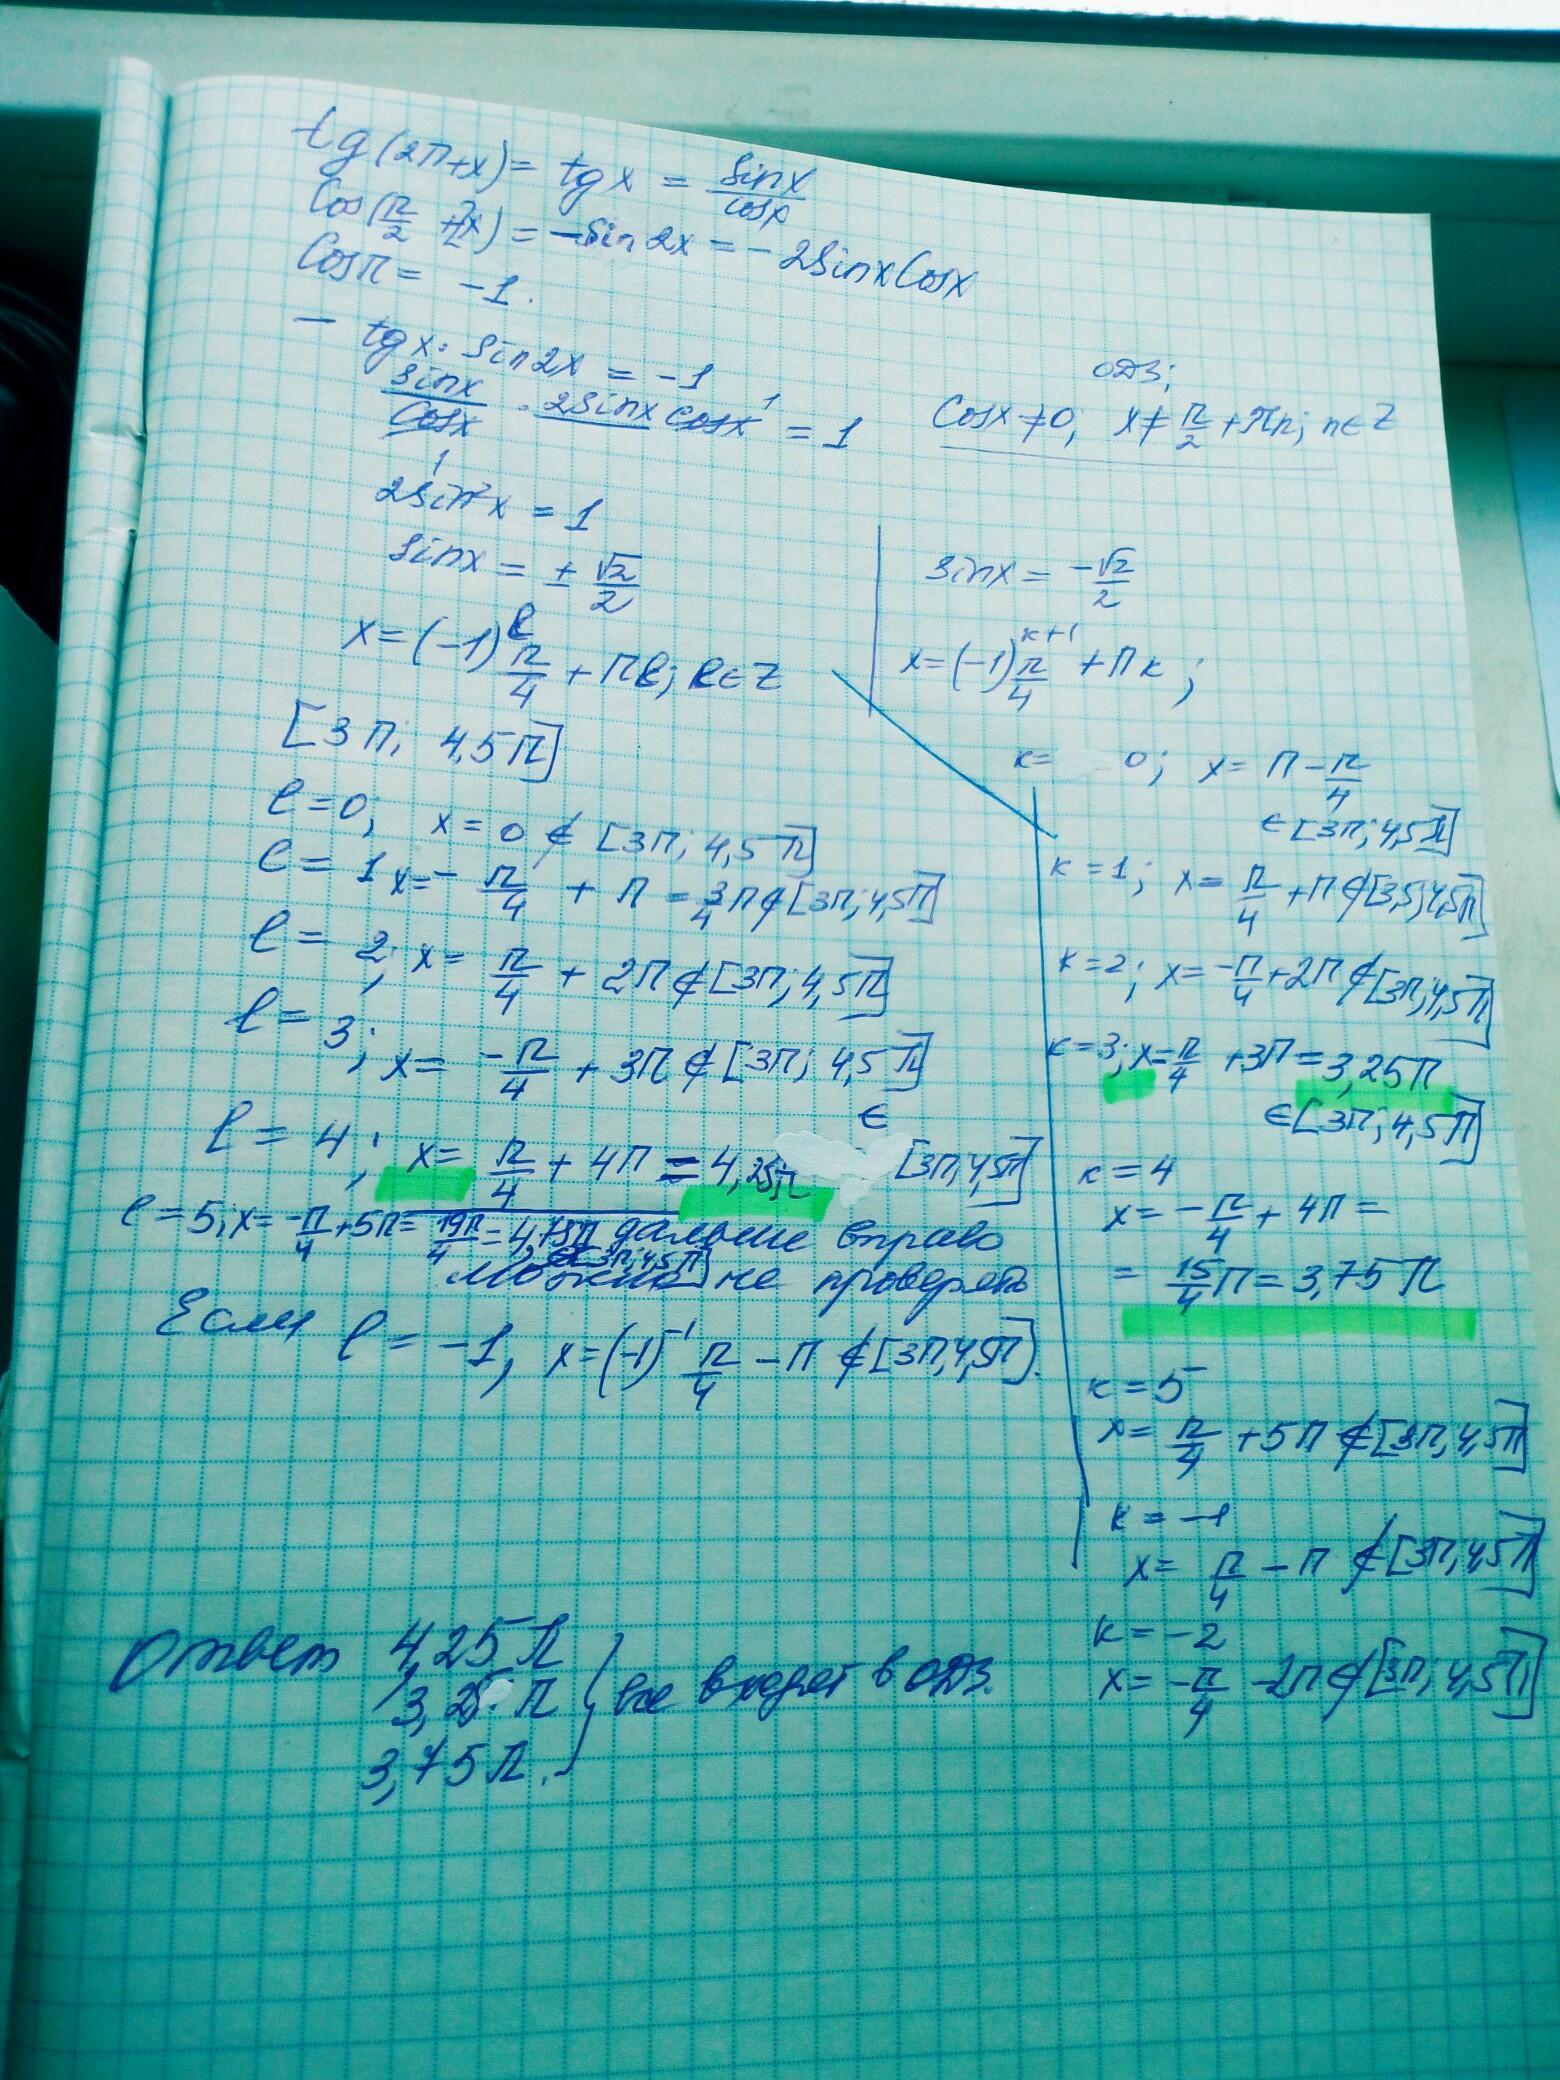 tg(2π+x) = tg x = sinx/cosx
Cos(π/2 + 2x) = -sin2x = -2sinxCosx
Cosπ = -1.
- tgx · sin2x = -1
ОДЗ;
sinx/cosx · 2sinx cosx = 1
Cosx ≠ 0; x ≠ π/2 + πn; n∈Z
2sin²x = 1
sinx = ± √2/2
x = (-1)^ℓ π/4 + πℓ; ℓ∈Z
[3π; 4,5π]
ℓ = 0; x = 0 ∉ [3π; 4,5π]
ℓ = 1 x = - π/4 + π = 3/4 π ∉ [3π; 4,5π]
ℓ = 2; x = π/4 + 2π ∉ [3π; 4,5π]
ℓ = 3; x = -π/4 + 3π ∉ [3π; 4,5π]
ℓ = 4; x = π/4 + 4π = 4,25π ∈ [3π, 4,5π]
ℓ = 5; x = -π/4 + 5π = 19π/4 = 4,75π ∉ [3π; 4,5π]
дальше вправо
можно не проверять
Если ℓ = -1, x = (-1)^-1 π/4 - π ∉ [3π, 4,5π].
sinx = -√2/2
x = (-1)^k+1 π/4 + πk;
k = 0; x = π - π/4
∈ [3π; 4,5π]
k = 1; x = π/4 + π ∉ [3,5; 4,5π]
k = 2; x = -π/4 + 2π ∉ [3π; 4,5π]
k = 3; x = π/4 + 3π = 3,25π
∈ [3π; 4,5π]
k = 4
x = -π/4 + 4π =
= 15/4 π = 3,75π
k = 5
x = π/4 + 5π ∉ [3π, 4,5π]
k = -1
x = π/4 - π ∉ [3π, 4,5π]
k = -2
x = -π/4 - 2π ∉ [3π; 4,5π]
Ответ 4,25π
3,25π } все входят в ОДЗ.
3,75π.